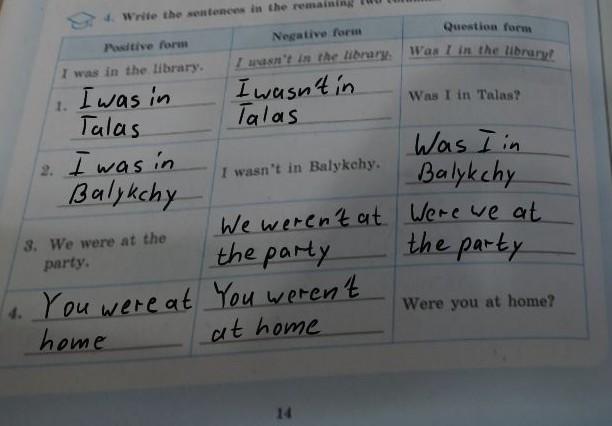 4. Write the sentences in the remaining two
Positive form
Negative form
Question form
I was in the library.
I wasn't in the library.
Was I in the library?
1. I was in
Talas
I wasn't in
Talas
Was I in Talas?
2. I was in
Balykchy
I wasn't in Balykchy.
Was I in
Balykchy
3. We were at the
party.
We weren't at
the party
Were we at
the party
4. You were at
home
You weren't
at home
Were you at home?
14